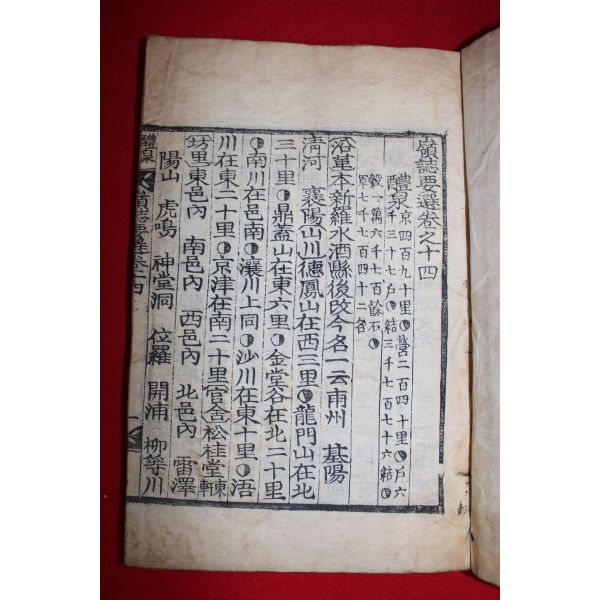 嶺誌要選卷之十四
醴泉京四百九十里◑營二百四十里◑戶六
千三十七戶◑結三千七百七十六結◑
穀一萬六千七百餘石◑
軍七千七百四十二名
沿革本新羅水酒縣後改今名一云甫州 基陽
淸河 襄陽山川德鳳山在西三里◑龍門山在北
三十里◑鼎盖山在東六里◑金堂谷在北二十里
◑南川在邑南◑瀼川上同◑沙川在東十里◑浯
川在東二十里◑京津在南二十里官舍松桂堂東軒
坊里東邑內 南邑內 西邑內 北邑內 雷澤
陽山 虎鳴 神堂洞 位羅 開浦 柳等川
醴泉 嶺誌要選卷十四 一